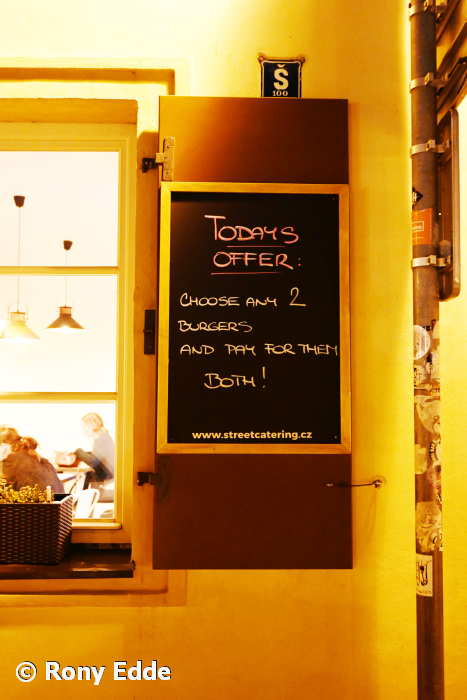 Š
100
TODAYS
OFFER:
CHOOSE ANY 2
BURGERS
AND PAY FOR THEM
BOTH!
www.streetcatering.cz
© Rony Edde